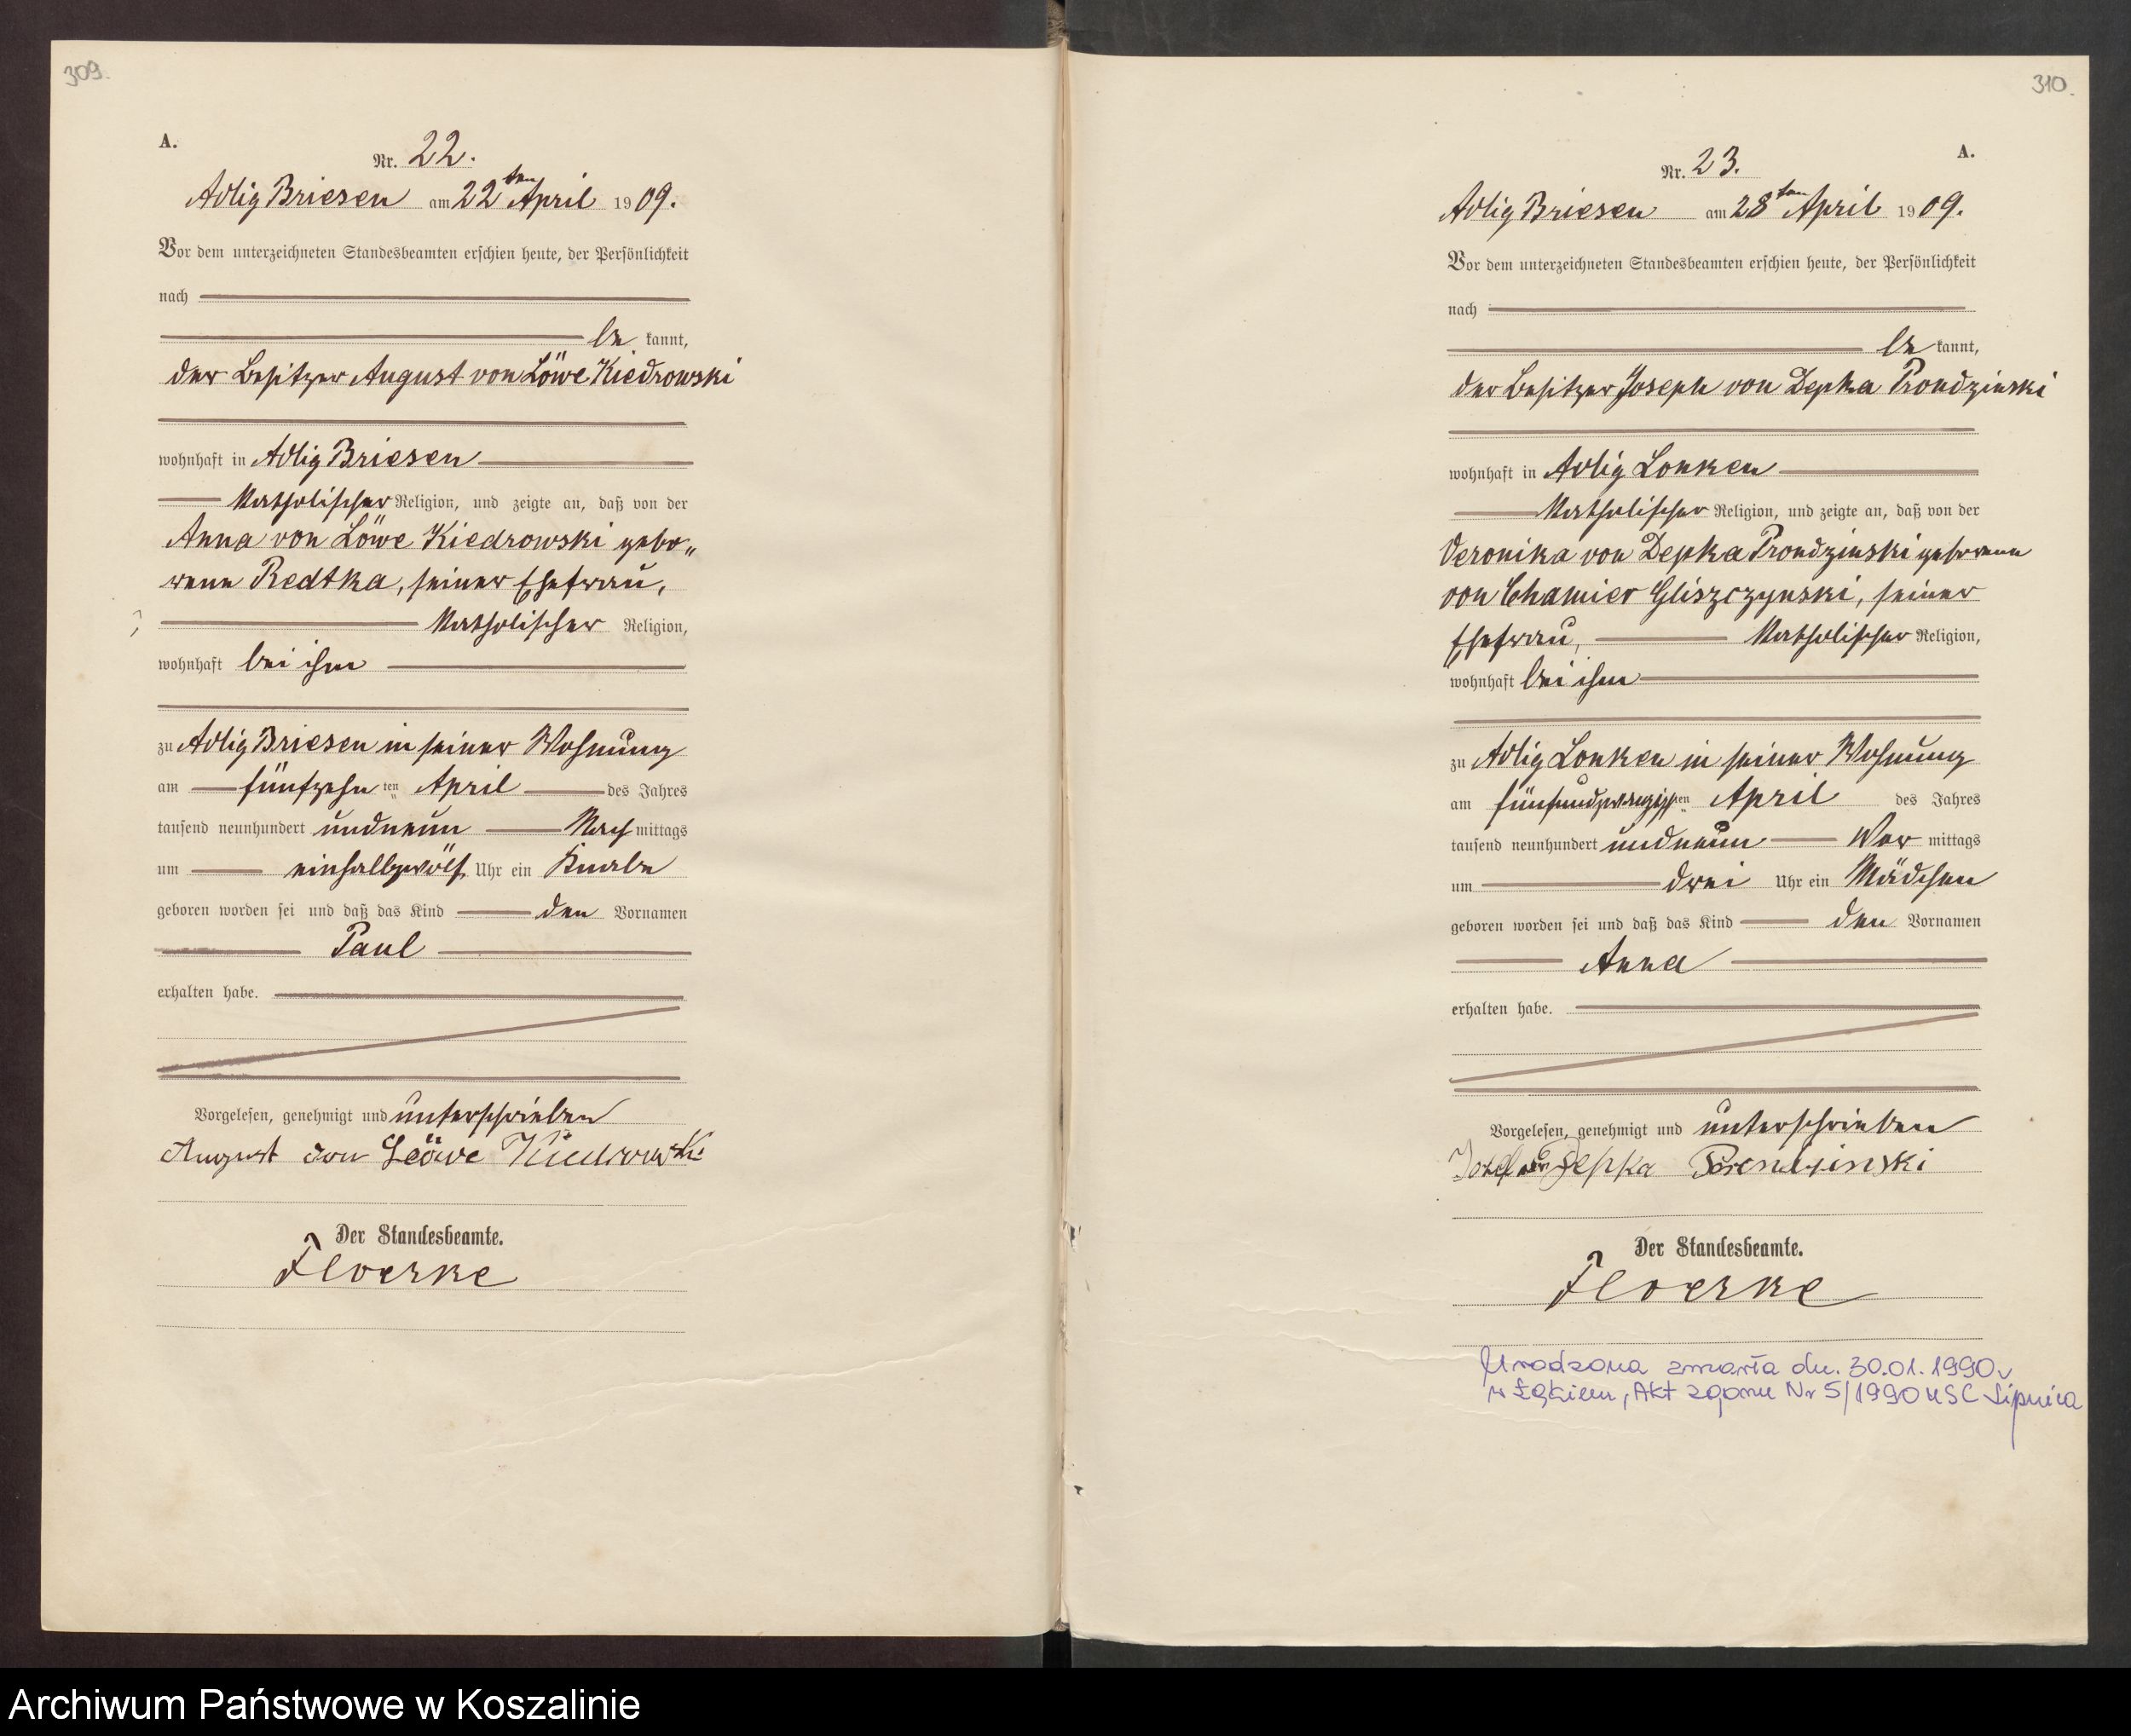 309.
A.
Nr. 22.
Adlig Briesen am 22ten April 1909.
Vor dem unterzeichneten Standesbeamten erschien heute, der Persönlichkeit
nach
be kannt,
der Besitzer August von Löwe Kiedrowski
wohnhaft in Adlig Briesen
katholischer Religion, und zeigte an, daß von der
Anna von Löwe Kiedrowski gebo„
rene Redtka, seiner Ehefrau,
katholischer Religion,
wohnhaft bei ihm
zu Adlig Briesen in seiner Wohnung
am fünfzehnten April des Jahres
tausend neunhundert undneun Nachmittags
um einhalbzwölf Uhr ein Knabe
geboren worden sei und daß das Kind den Vornamen
Paul
erhalten habe.
Vorgelesen, genehmigt und unterschrieben
August von Leöwe Kiedrowski
Der Standesbeamte.
Floerke
310.
A.
Nr. 23.
Adlig Briesen am 28ten April 1909.
Vor dem unterzeichneten Standesbeamten erschien heute, der Persönlichkeit
nach
be kannt,
der Besitzer Joseph von Depka Prondzinski
wohnhaft in Adlig Lonken
katholischer Religion, und zeigte an, daß von der
Veronika von Depka Prondzinski geborenen
von Chamier Gliszczynski, seiner
Ehefrau, katholischer Religion,
wohnhaft bei ihm
zu Adlig Lonken in seiner Wohnung
am fünfundzwanzigsten April des Jahres
tausend neunhundert undneun Vor mittags
um drei Uhr ein Mädchen
geboren worden sei und daß das Kind den Vornamen
Anna
erhalten habe.
Vorgelesen, genehmigt und unterschrieben
Josef von Depka Prondzinski
Der Standesbeamte.
Floerke
Urodzona zmarła dn. 30.01.1990r
w Łąkiem, Akt zgonu Nr 5/1990 USC Lipnica
Archiwum Państwowe w Koszalinie